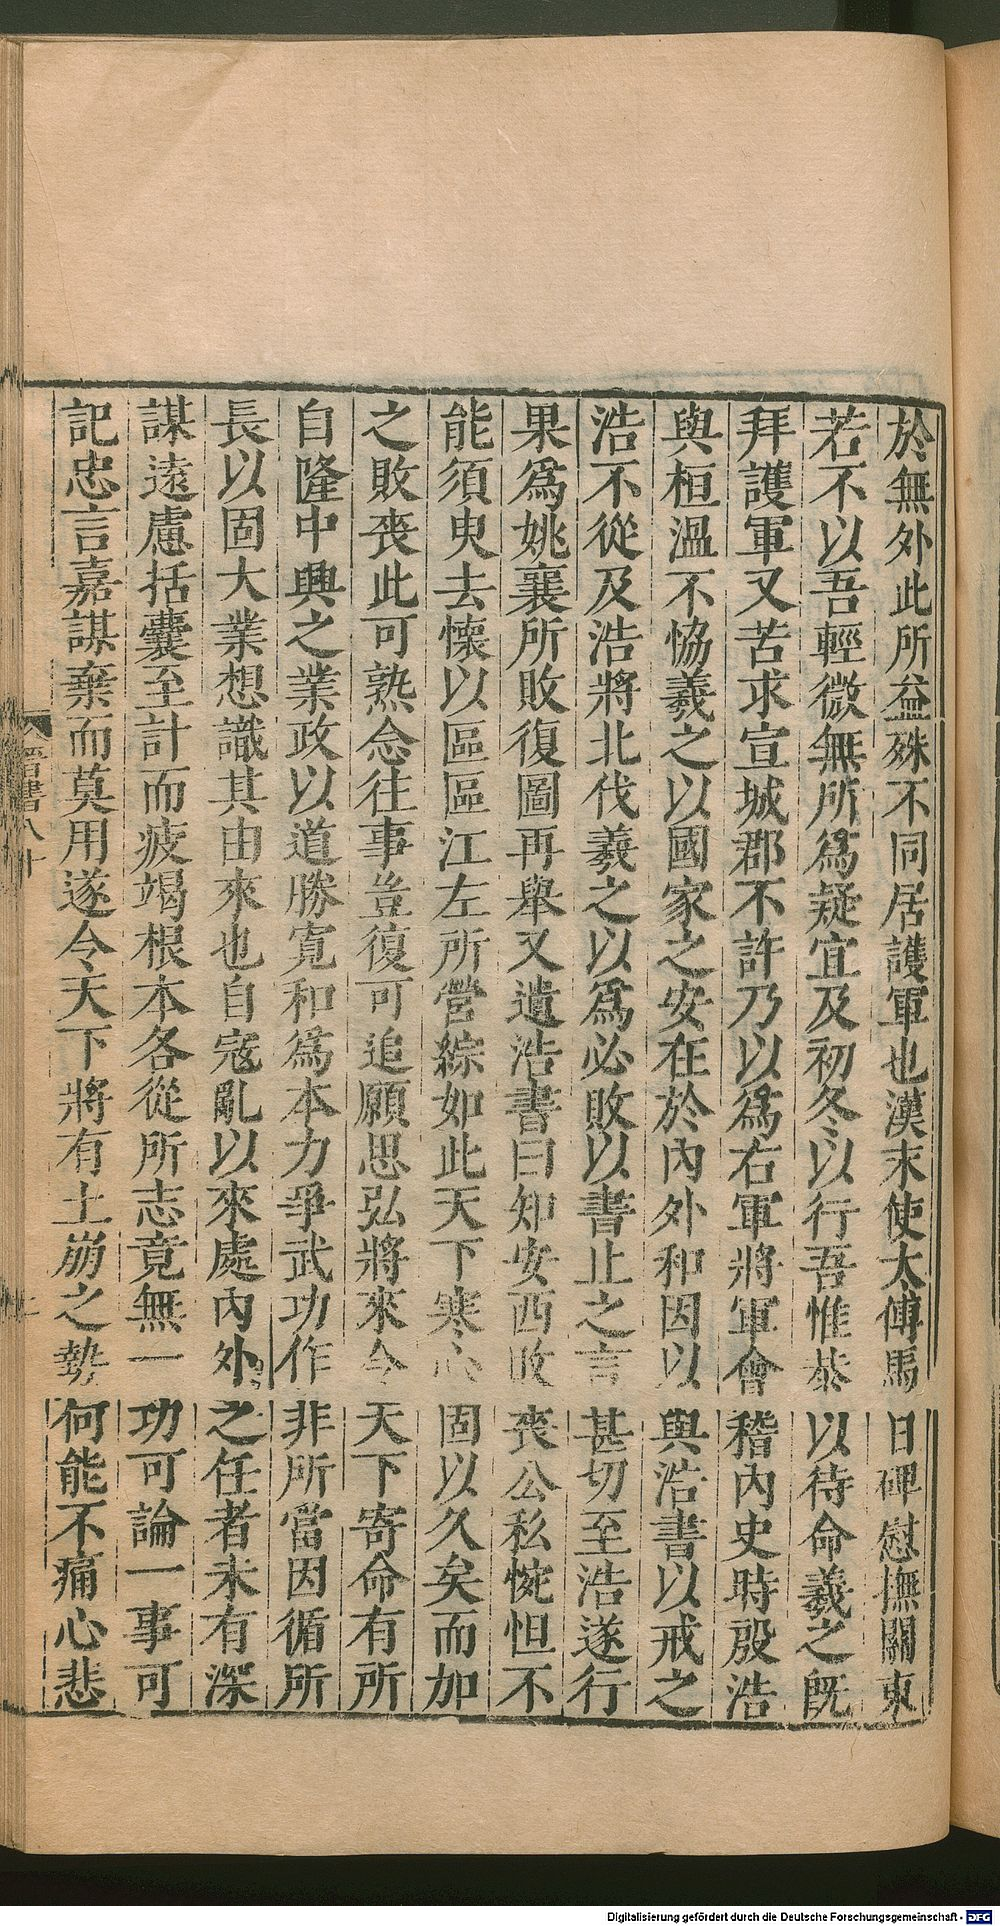 於無外此所益殊不同居護軍也漢末使太傅馬日磾慰撫關東
若不以吾輕微無所爲疑宜及初冬以行吾惟恭以待命羲之旣
拜護軍又苦求宣城郡不許乃以爲右軍將軍會稽內史時殷浩
與桓溫不恊羲之以國家之安在於內外和因以與浩書以戒之
浩不從及浩將北伐羲之以爲必敗以書止之言甚切至浩遂行
果爲姚襄所敗復圖再舉又遺浩書曰知安西敗喪公私惋怛不
能須臾去懷以區區江左所營綜如此天下寒心固以久矣而加
之敗喪此可熟念往事豈復可追願思弘將來令天下寄命有所
自隆中興之業政以道勝寬和爲本力爭武功作非所當因循所
長以固大業想識其由來也自寇亂以來處內外之任者未有深
謀遠慮括囊至計而疲竭根本各從所志竟無一功可論一事可
記忠言嘉謀棄而莫用遂令天下將有土崩之勢何能不痛心悲
晉書八十
Digitalisierung gefördert durch die Deutsche Forschungsgemeinschaft - DFG